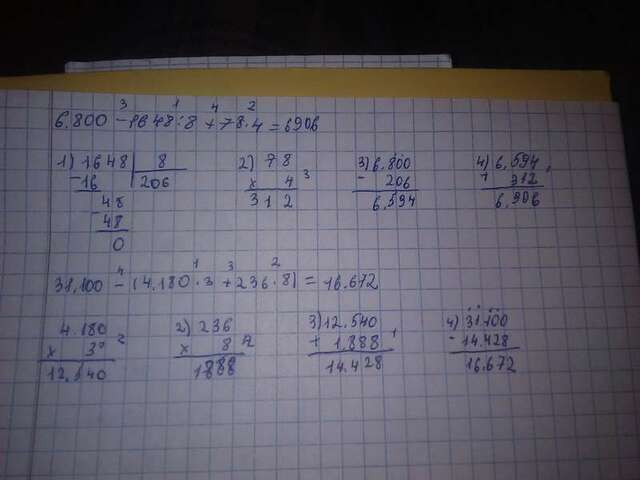 3 1 4 2
6.800 - 1648 : 8 + 78 · 4 = 6906
1) 1648 8 2) 78 3) 6,800 4) 6,594
- 16 206 x 4 3 - 206 + 312
48 312 6,594 6,906
- 48
0
4 1 3 2
31,100 - (4.180 · 3 + 236 · 8) = 16.672
4.180 2) 236 3) 12.540 4) 31.100
x 3 2 x 8 + 1.888 - 14.428
12,540 1888 14.428 16.672